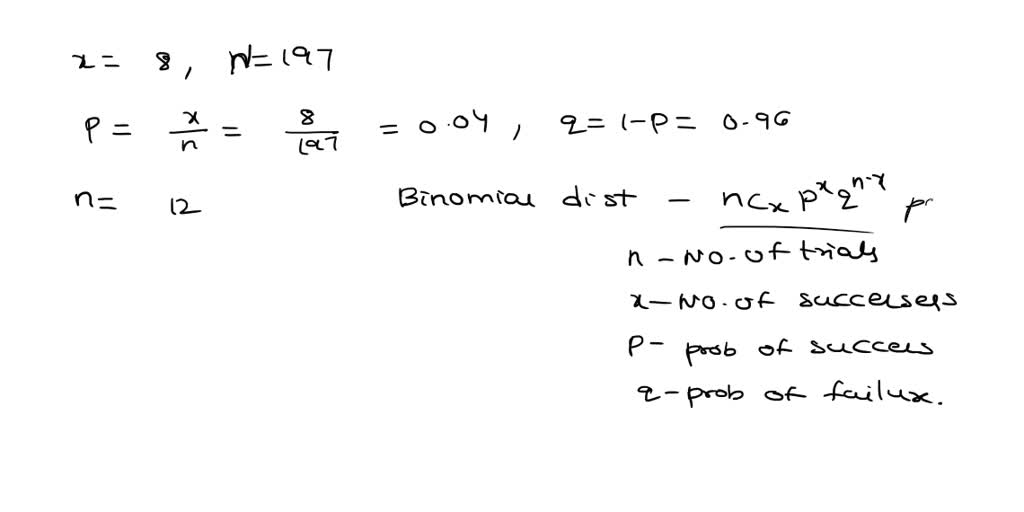 x = 8, N = 197
P = x/n = 8/197 = 0.04, q = 1-P = 0.96
n = 12 Binomial dist - nCx p^x q^n-x
n - No. of trials
x - No. of successers
P - prob of success
q - prob of failux.